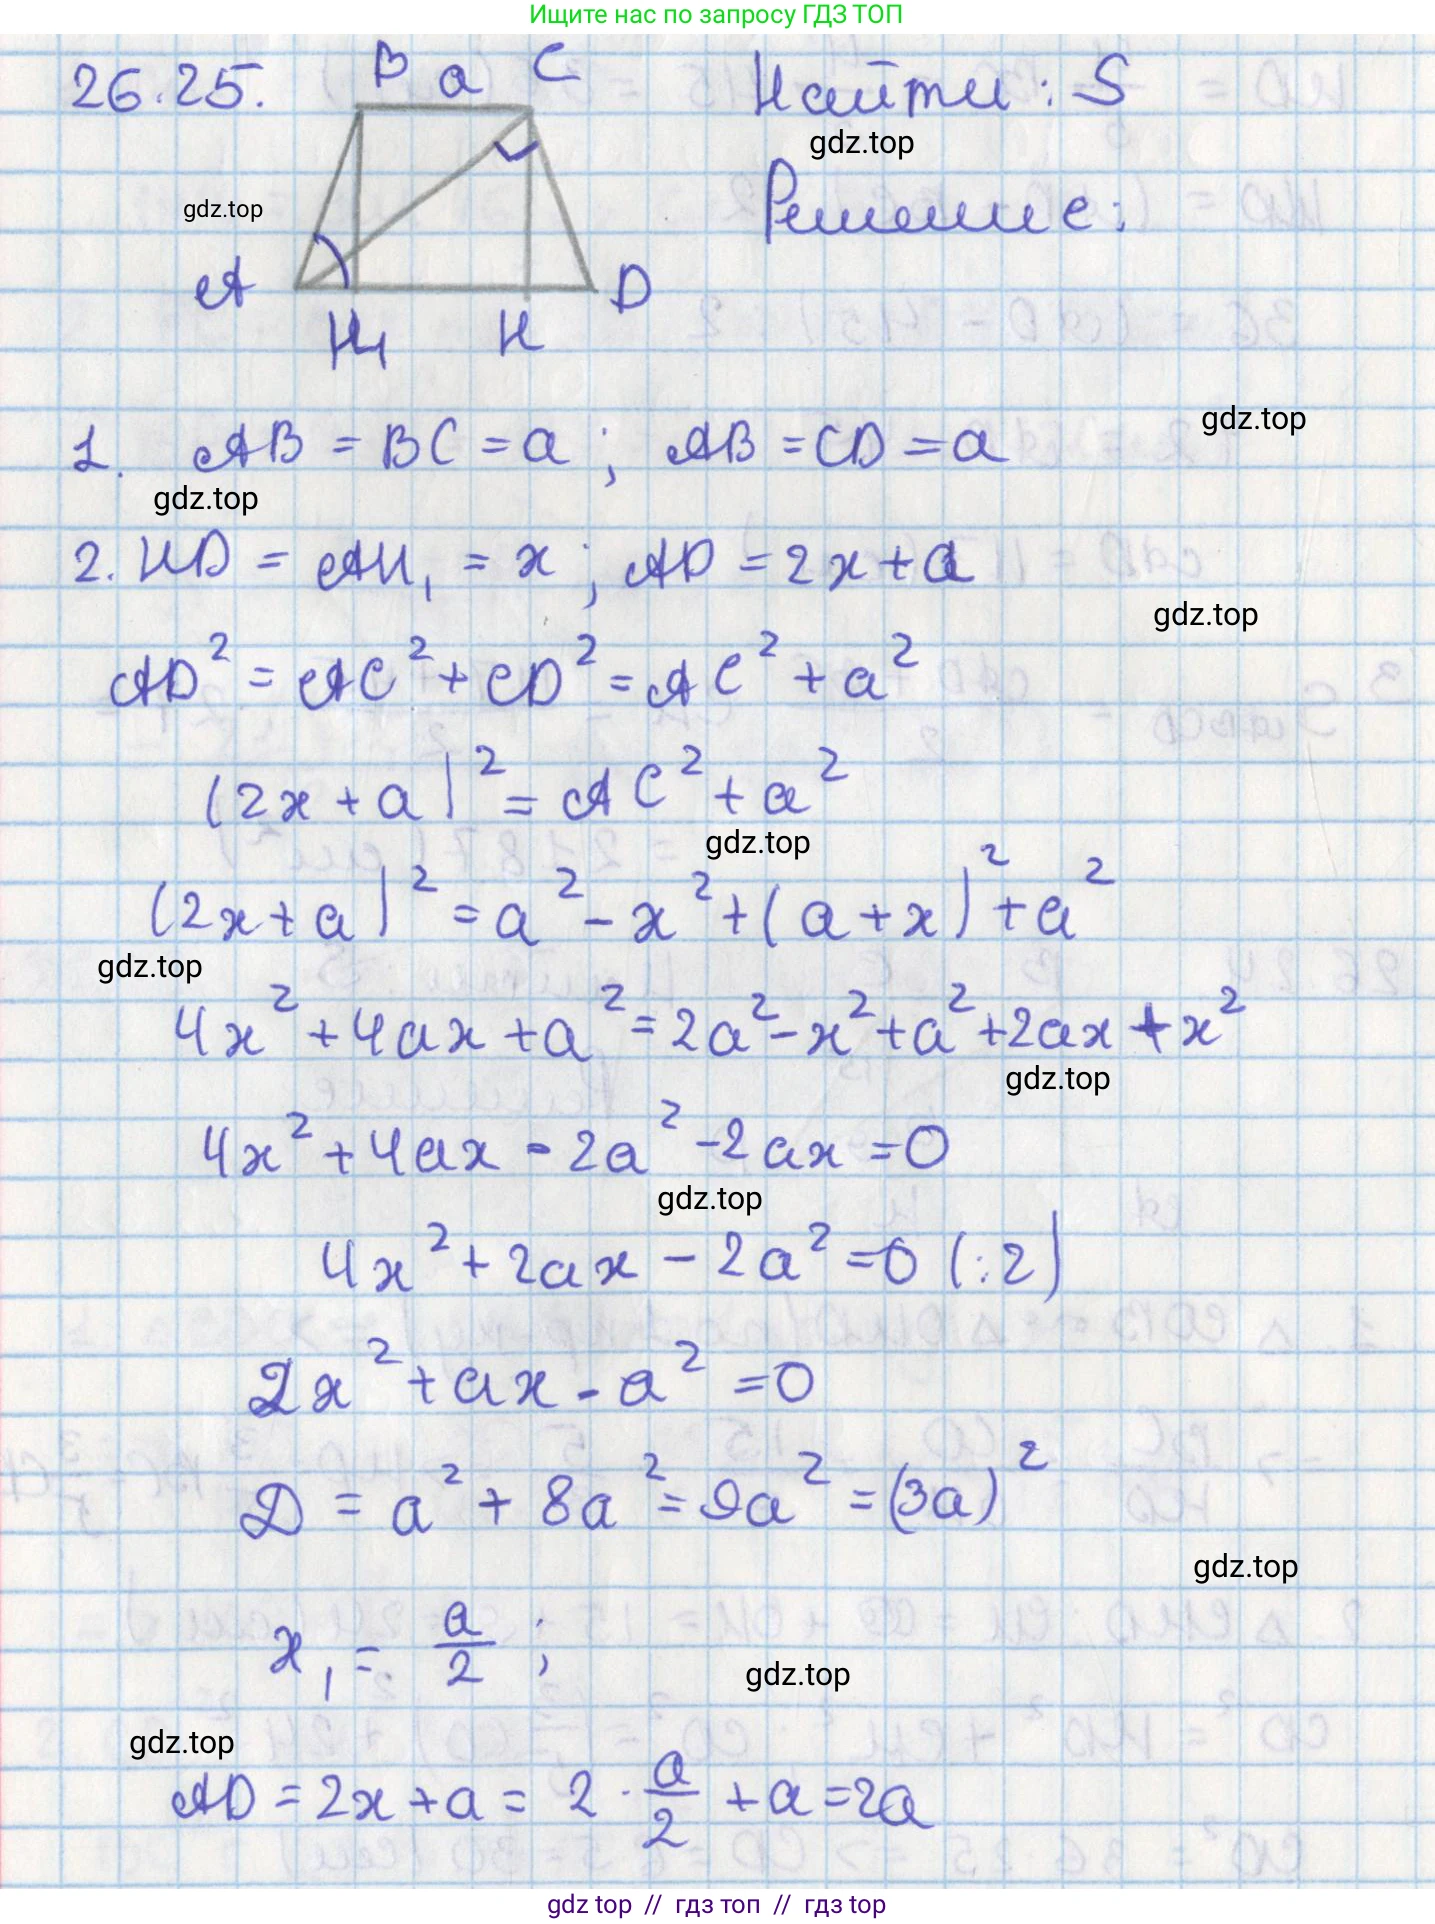 Ищите нас по запросу ГДЗ ТОП
26.25. B a C Найти: S
gdz.top
gdz.top Решение:
A D
H₁ H
gdz.top
1. AB = BC = a ; AB = CD = a
gdz.top
2. HD = AH₁ = x ; AD = 2x + a
gdz.top
AD² = AC² + CD² = AC² + a²
(2x + a)² = AC² + a²
gdz.top
(2x + a)² = a² - x² + (a + x)² + a²
gdz.top
4x² + 4ax + a² = 2a² - x² + a² + 2ax + x²
gdz.top
4x² + 4ax - 2a² - 2ax = 0
gdz.top
4x² + 2ax - 2a² = 0 (:2)
2x² + ax - a² = 0
D = a² + 8a² = 9a² = (3a)²
gdz.top
x₁ = a/2 ;
gdz.top
gdz.top
AD = 2x + a = 2 · a/2 + a = 2a
gdz top // гдз топ // гдз top